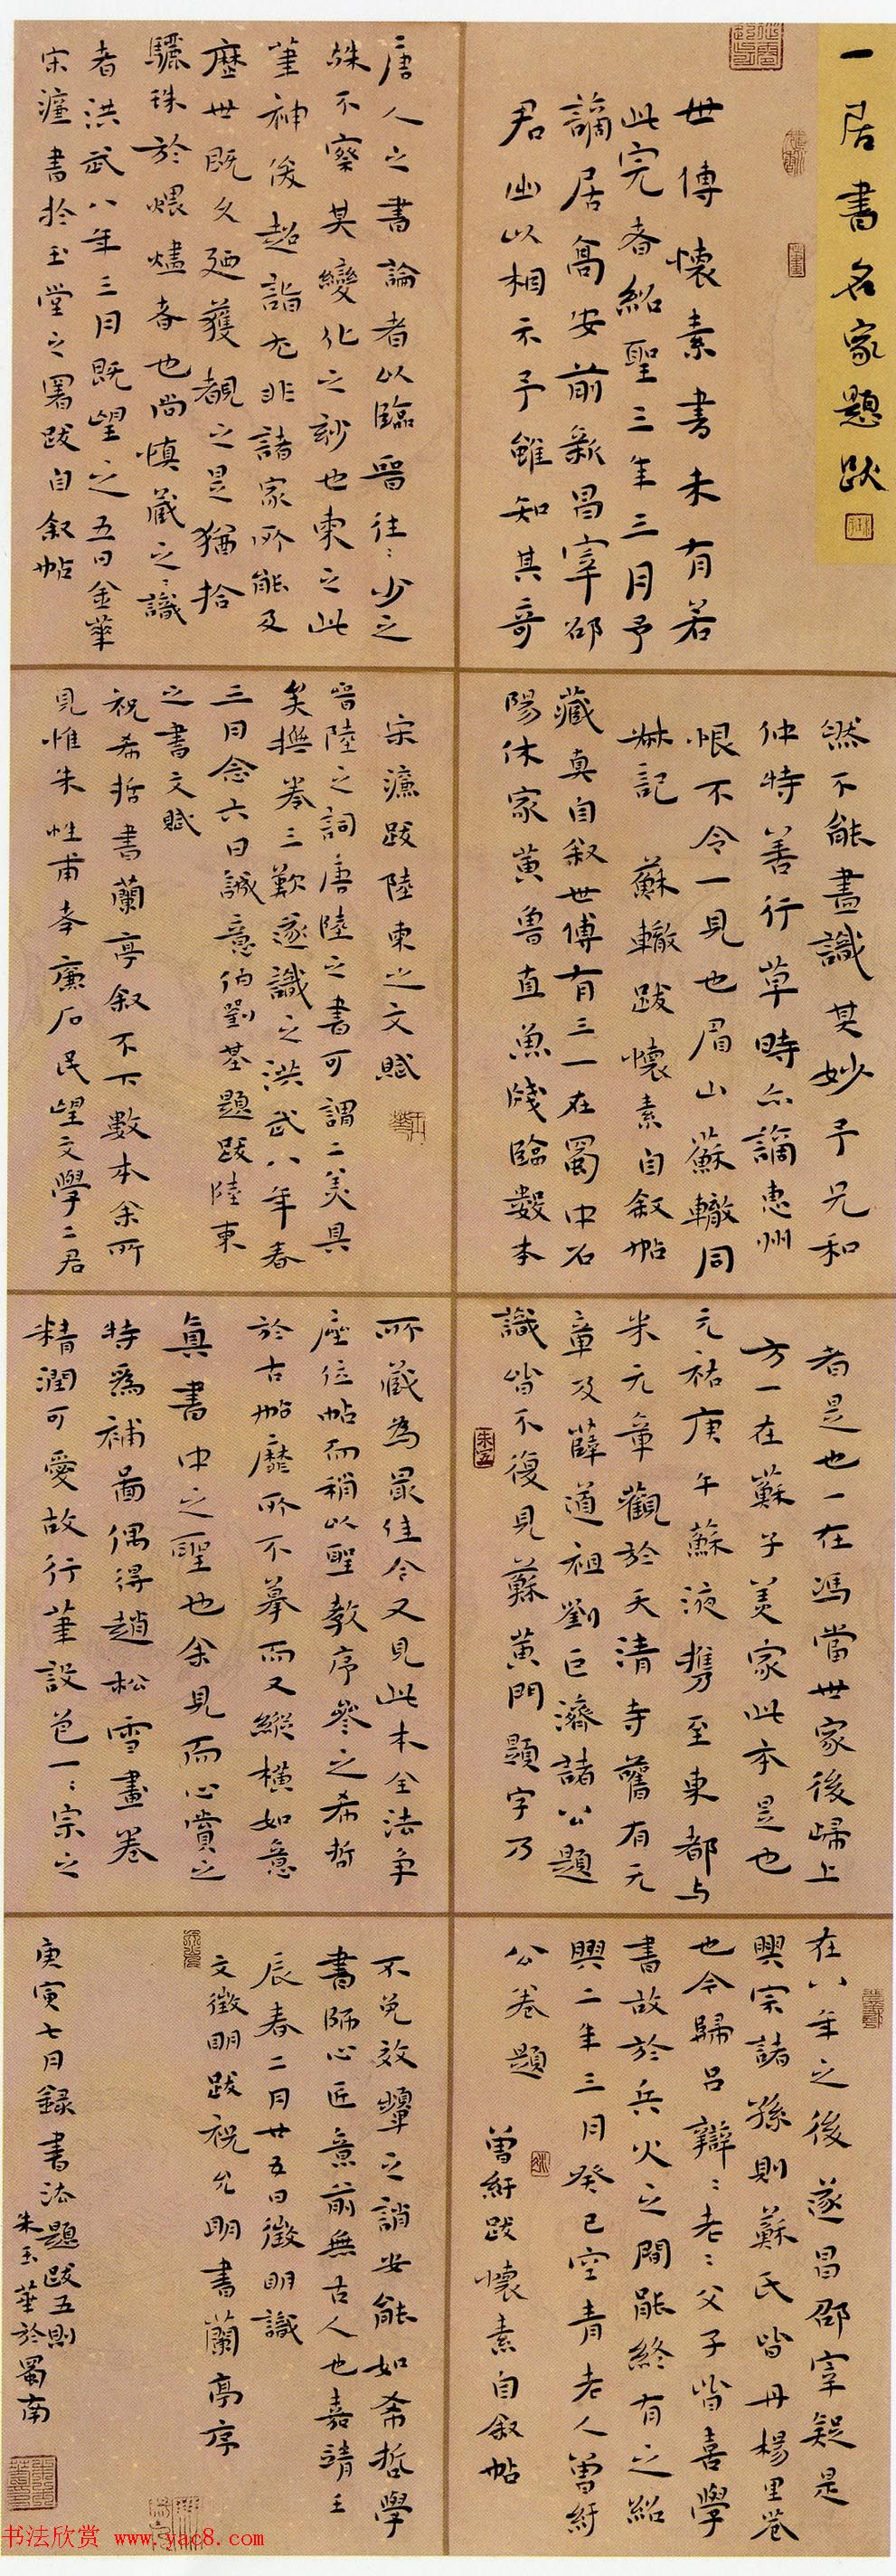 一居書名家題跋
世傳懷素書未有若
此完者紹聖三年三月予
謫居高安前新昌宰邵
君出以相示予雖知其奇
然不能盡識其妙予兄和
仲特善行草時亦謫惠州
恨不令一見也眉山蘇轍同
叔記 蘇轍跋懷素自叙帖
藏真自叙世傳有三一在蜀中石
陽休家黄魯直魚牋臨數本
者是也一在馮當世家後歸上
方一在蘇子美家此本是也
元祐庚午蘇液攜至東都与
米元章觀於天清寺舊有元
章及薛道祖劉巨濟諸公題
識皆不復見蘇黄門題字乃
在八年之後遂昌邵宰疑是
興宗諸孫則蘇氏皆丹楊里巷
也今歸吕辯辯老老父子皆喜學
書故於兵火之間能終有之紹
興二年三月癸巳空青老人曾紆
公卷題 曾紆跋懷素自叙帖
唐人之書論者以臨晉往往少之
殊不察其變化之妙也柬之此
筆神俊超詣尤非諸家所能及
歷世既久廼獲覩之是猶拾
驪珠於煨燼者也尚慎藏之之識
者洪武八年三月既望之五日金華
宋濂書於玉堂之署跋自叙帖
宋濂跋陸柬之文賦
晉陸之詞唐陸之書可謂二美具
矣撫卷三歎遂識之洪武八年春
三月念六日誠意伯劉基題跋陸柬
之書文賦
祝希哲書蘭亭叙不下數本余所
見惟朱性甫孝廉石民望文學二君
所藏為最佳今又見此本全法争
座位帖而稍以聖教序參之希哲
於古帖靡所不摹而又縱橫如意
真書中之聖也余見而心賞之
特為補圖偶得趙松雪畫卷
精潤可愛故行筆設色一一宗之
不免效顰之誚安能如希哲學
書師心匠意前無古人也嘉靖壬
辰春二月廿五日徵明識
文徵明跋祝允明書蘭亭序
庚寅七月録書法題跋五則
朱玉華於蜀南
书法欣赏 www.yac8.com